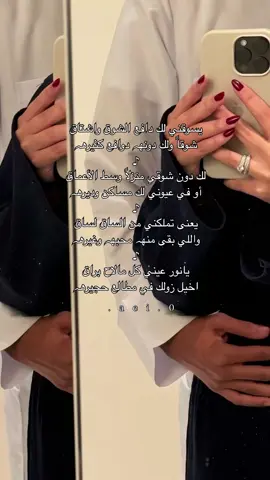 يسوقني لك دافع الشوق واشتاق
شوقاً ولك دونهم دوافع كثيرهم
♪
لك دون شوقي منزلاً وسط الأعماق
أو في عيوني لك مساكن وديرهم
♪
يعنى تملكني من الساق لساق
واللي بقى منهم محبهم وغيرهم
♪
يأنور عيني كل مالاح براق
اخيل زولك في مطالع حجيرهم
. a e i . 0